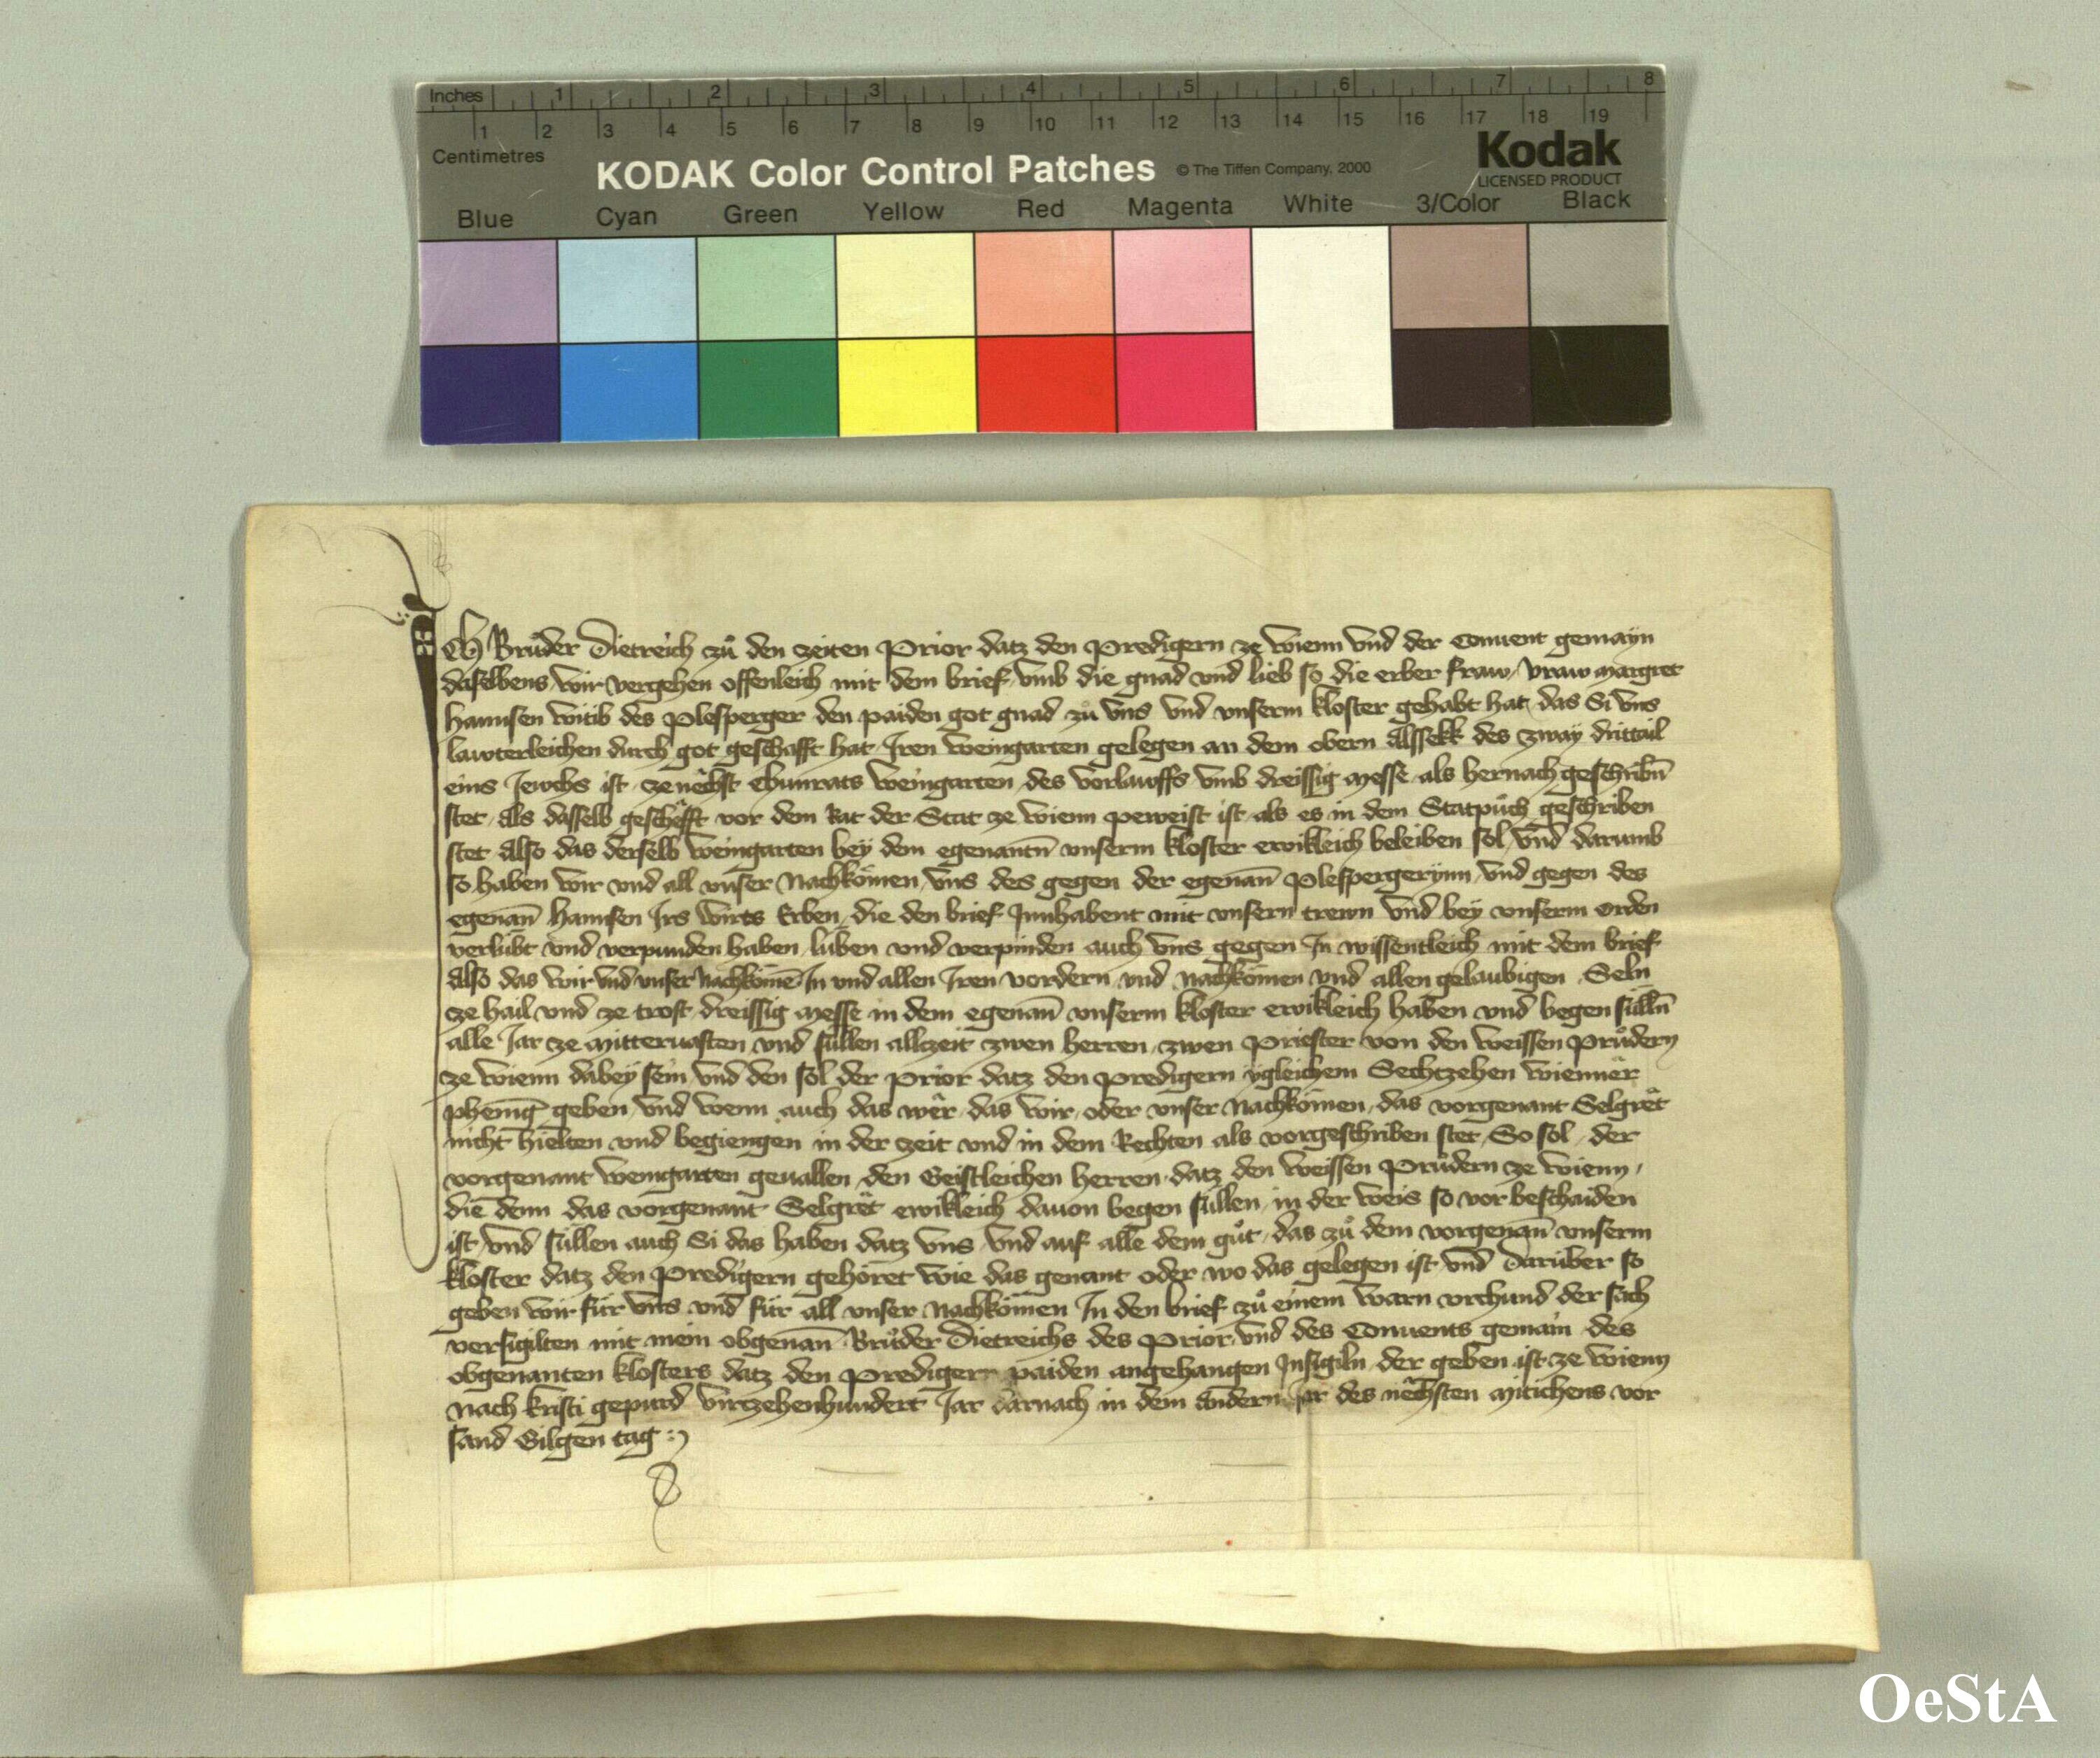 Inches 1 2 3 4 5 6 7 8
1 2 3 4 5 6 7 8 9 10 11 12 13 14 15 16 17 18 19
Centimetres
KODAK Color Control Patches © The Tiffen Company, 2000 Kodak
LICENSED PRODUCT
Blue Cyan Green Yellow Red Magenta White 3/Color Black
Ich Bruͦder Dietreich zuͦ den zeiten Prior datz den Predigern ze Wienn vnd der Conuent gemayn
daselbens, wir vergehen offenleich mit dem brief, vmb die gnad vnd lieb so die erber fraw, vraw Margret
Hannsen witib des Plesperger den paiden got gnad zuͦ vns vnd vnserm kloster gehabt hat, das Si vns
lauterleichen durch got geschafft hat, Iren weingarten gelegen an dem obern Alssekk des zway drittail
eins Jewchs ist, ze nêchst Chunrats weingarten, des vorlauffs vmb dreissig messe, als hernach geschribn̄
stet, als dasselb geschêfft vor dem Rat der Stat ze Wienn peweist ist, als es in dem Statpuͦch geschriben
stet Also das derselb weingarten bey dem egenantn̄ vnserm kloster ewikleich beleiben sol, vnd darumb
so haben wir vnd all vnser Nachkömen, vns des gegen der egenan̄ Plespergerynn, vnd gegen des
egenan̄ Hannsen Irs wirts Erben, die den brief Innhabent mit vnsern trewn vnd bey vnserm orden
verlubt vnd verpunden haben, lüben vnd verpinden auch vns gegen In wissentleich mit dem brief
Also das wir vnd vnser Nachkömē In vnd allen Iren vordern vnd Nachkömen vnd allen gelaubigen Seln
ze hail vnd ze trost dreissig messe in dem egenan̄ vnserm kloster ewikleich haben vnd begen sülln̄
alle Jar ze Mitteruasten vnd süllen allzeit zwen herren, zwen Priester von den weissen Pruͦdern
ze Wienn dabey sein, vnd den sol der Prior datz den Predigern ygleichem Sechtzehen wienner
pheniḡ geben, vnd wenn auch das wêr, das wir, oder vnser Nachkömen, das vorgenant Selgrêt
nicht hielten vnd begiengen in der zeit vnd in dem Rechten als vorgeschriben stet, So sol, der
vorgenant weingarten geuallen, den Geistleichen herren, datz den weissen Pruͦdern ze Wienn,
die denn das vorgenant Selgrêt ewikleich dauon begen süllen, in der weis so vor beschaiden
ist, vnd süllen auch Si das haben datz vns, vnd auf alle dem guͦt, das zuͦ dem vorgenan̄ vnserm
kloster datz den Predigern gehöret wie das genant oder wo das gelegen ist vnd darüber so
geben wir für vns vnd für all vnser Nachkömen In den brief zuͦ einem warn vrchund der sach
versigilten mit mein obgenan̄ Bruͦder Dietreichs des Prior, vnd des Conuents gemain des
obgenanten klosters datz den Predigern paiden angehangen Insigiln, der geben ist ze Wienn
nach kristi gepurd virtzehenhundert Jar darnach in dem andern Jar des nêchsten Mitichens vor
sand Gilgen tag
OeStA